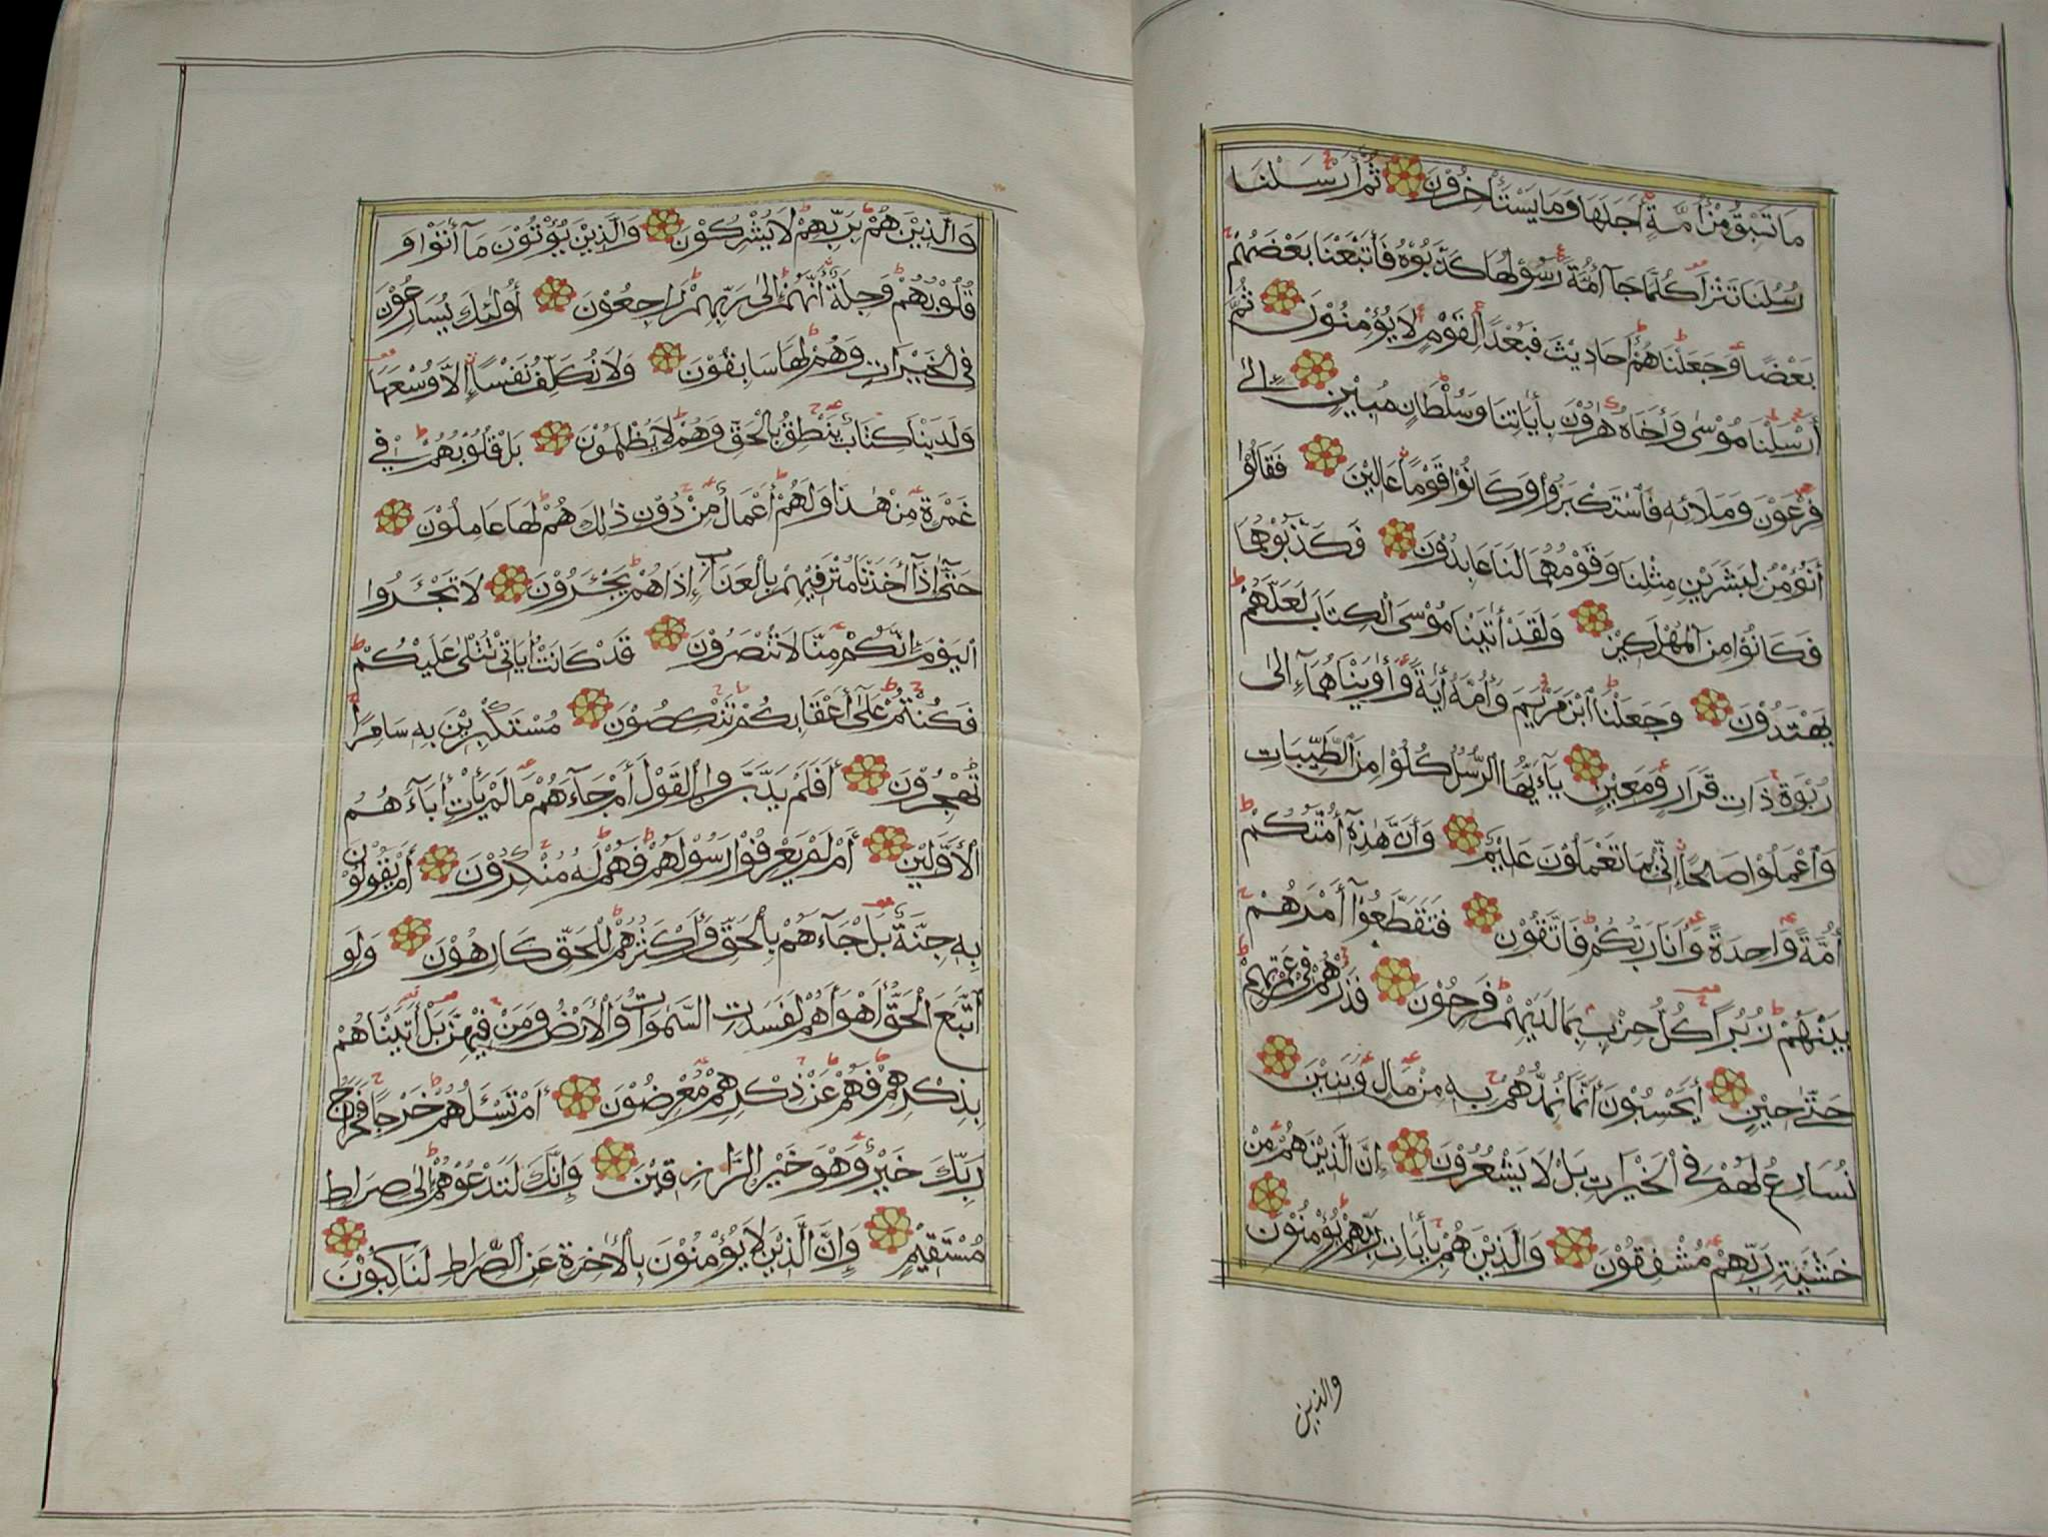 مَا تَسْبِقُ مِنْ أُمَّةٍ أَجَلَهَا وَمَا يَسْتَأْخِرُوْنَ ثُمَّ أَرْسَلْنَا
رُسُلَنَا تَتْرَا كُلَّمَا جَآءَ أُمَّةً رَسُوْلُهَا كَذَّبُوْهُ فَأَتْبَعْنَا بَعْضَهُمْ
بَعْضًا وَجَعَلْنَاهُمْ أَحَادِيْثَ فَبُعْدًا لِقَوْمٍ لَا يُؤْمِنُوْنَ ثُمَّ
أَرْسَلْنَا مُوْسٰى وَأَخَاهُ هٰرُوْنَ بِأٰيَاتِنَا وَسُلْطَانٍ مُبِيْنٍ إِلٰى
فِرْعَوْنَ وَمَلَائِهِ فَاسْتَكْبَرُوْا وَكَانُوْا قَوْمًا عَالِيْنَ فَقَالُوْا
أَنُؤْمِنُ لِبَشَرَيْنِ مِثْلِنَا وَقَوْمُهُمَا لَنَا عَابِدُوْنَ فَكَذَّبُوْهُمَا
فَكَانُوْا مِنَ الْمُهْلَكِيْنَ وَلَقَدْ أٰتَيْنَا مُوْسَى الْكِتَابَ لَعَلَّهُمْ
يَهْتَدُوْنَ وَجَعَلْنَا ابْنَ مَرْيَمَ وَأُمَّهُ أٰيَةً وَأٰوَيْنَاهُمَآ إِلٰى
رَبْوَةٍ ذَاتِ قَرَارٍ وَمَعِيْنٍ يَآ أَيُّهَا الرُّسُلُ كُلُوْا مِنَ الطَّيِّبَاتِ
وَاعْمَلُوْا صَالِحًا إِنِّيْ بِمَا تَعْمَلُوْنَ عَلِيْمٌ وَأَنَّ هٰذِهٓ أُمَّتُكُمْ
أُمَّةً وَاحِدَةً وَأَنَا رَبُّكُمْ فَاتَّقُوْنِ فَتَقَطَّعُوْآ أَمْرَهُمْ
بَيْنَهُمْ زُبُرًا كُلُّ حِزْبٍ بِمَا لَدَيْهِمْ فَرِحُوْنَ فَذَرْهُمْ فِيْ غَمْرَتِهِمْ
حَتّٰى حِيْنٍ أَيَحْسَبُوْنَ أَنَّمَا نُمِدُّهُمْ بِهِ مِنْ مَالٍ وَبَنِيْنَ
نُسَارِعُ لَهُمْ فِي الْخَيْرَاتِ بَلْ لَا يَشْعُرُوْنَ إِنَّ الَّذِيْنَ هُمْ مِنْ
خَشْيَةِ رَبِّهِمْ مُشْفِقُوْنَ وَالَّذِيْنَ هُمْ بِأٰيَاتِ رَبِّهِمْ يُؤْمِنُوْنَ
والذين
وَالَّذِيْنَ هُمْ بِرَبِّهِمْ لَا يُشْرِكُوْنَ وَالَّذِيْنَ يُؤْتُوْنَ مَآ أٰتَوْا وَ
قُلُوْبُهُمْ وَجِلَةٌ أَنَّهُمْ إِلٰى رَبِّهِمْ رَاجِعُوْنَ أُولٰئِكَ يُسَارِعُوْنَ
فِي الْخَيْرَاتِ وَهُمْ لَهَا سَابِقُوْنَ وَلَا نُكَلِّفُ نَفْسًا إِلَّا وُسْعَهَا
وَلَدَيْنَا كِتَابٌ يَنْطِقُ بِالْحَقِّ وَهُمْ لَا يُظْلَمُوْنَ بَلْ قُلُوْبُهُمْ فِيْ
غَمْرَةٍ مِنْ هٰذَا وَلَهُمْ أَعْمَالٌ مِنْ دُوْنِ ذٰلِكَ هُمْ لَهَا عَامِلُوْنَ
حَتّٰىٓ إِذَآ أَخَذْنَا مُتْرَفِيْهِمْ بِالْعَذَابِ إِذَا هُمْ يَجْئَرُوْنَ لَا تَجْئَرُوا
الْيَوْمَ إِنَّكُمْ مِنَّا لَا تُنْصَرُوْنَ قَدْ كَانَتْ أٰيَاتِيْ تُتْلٰى عَلَيْكُمْ
فَكُنْتُمْ عَلٰىٓ أَعْقَابِكُمْ تَنْكِصُوْنَ مُسْتَكْبِرِيْنَ بِهِ سَامِرًا
تَهْجُرُوْنَ أَفَلَمْ يَدَّبَّرُوا الْقَوْلَ أَمْ جَآءَهُمْ مَا لَمْ يَأْتِ أٰبَآءَهُمُ
الْأَوَّلِيْنَ أَمْ لَمْ يَعْرِفُوْا رَسُوْلَهُمْ فَهُمْ لَهُ مُنْكِرُوْنَ أَمْ يَقُوْلُوْنَ
بِهِ جِنَّةٌ بَلْ جَآءَهُمْ بِالْحَقِّ وَأَكْثَرُهُمْ لِلْحَقِّ كَارِهُوْنَ وَلَوِ
اتَّبَعَ الْحَقُّ أَهْوَآءَهُمْ لَفَسَدَتِ السَّمٰوَاتُ وَالْأَرْضُ وَمَنْ فِيْهِنَّ بَلْ أَتَيْنَاهُمْ
بِذِكْرِهِمْ فَهُمْ عَنْ ذِكْرِهِمْ مُعْرِضُوْنَ أَمْ تَسْئَلُهُمْ خَرْجًا فَخَرَاجُ
رَبِّكَ خَيْرٌ وَهُوَ خَيْرُ الرَّازِقِيْنَ وَإِنَّكَ لَتَدْعُوْهُمْ إِلٰى صِرَاطٍ
مُسْتَقِيْمٍ وَإِنَّ الَّذِيْنَ لَا يُؤْمِنُوْنَ بِالْأٰخِرَةِ عَنِ الصِّرَاطِ لَنَاكِبُوْنَ